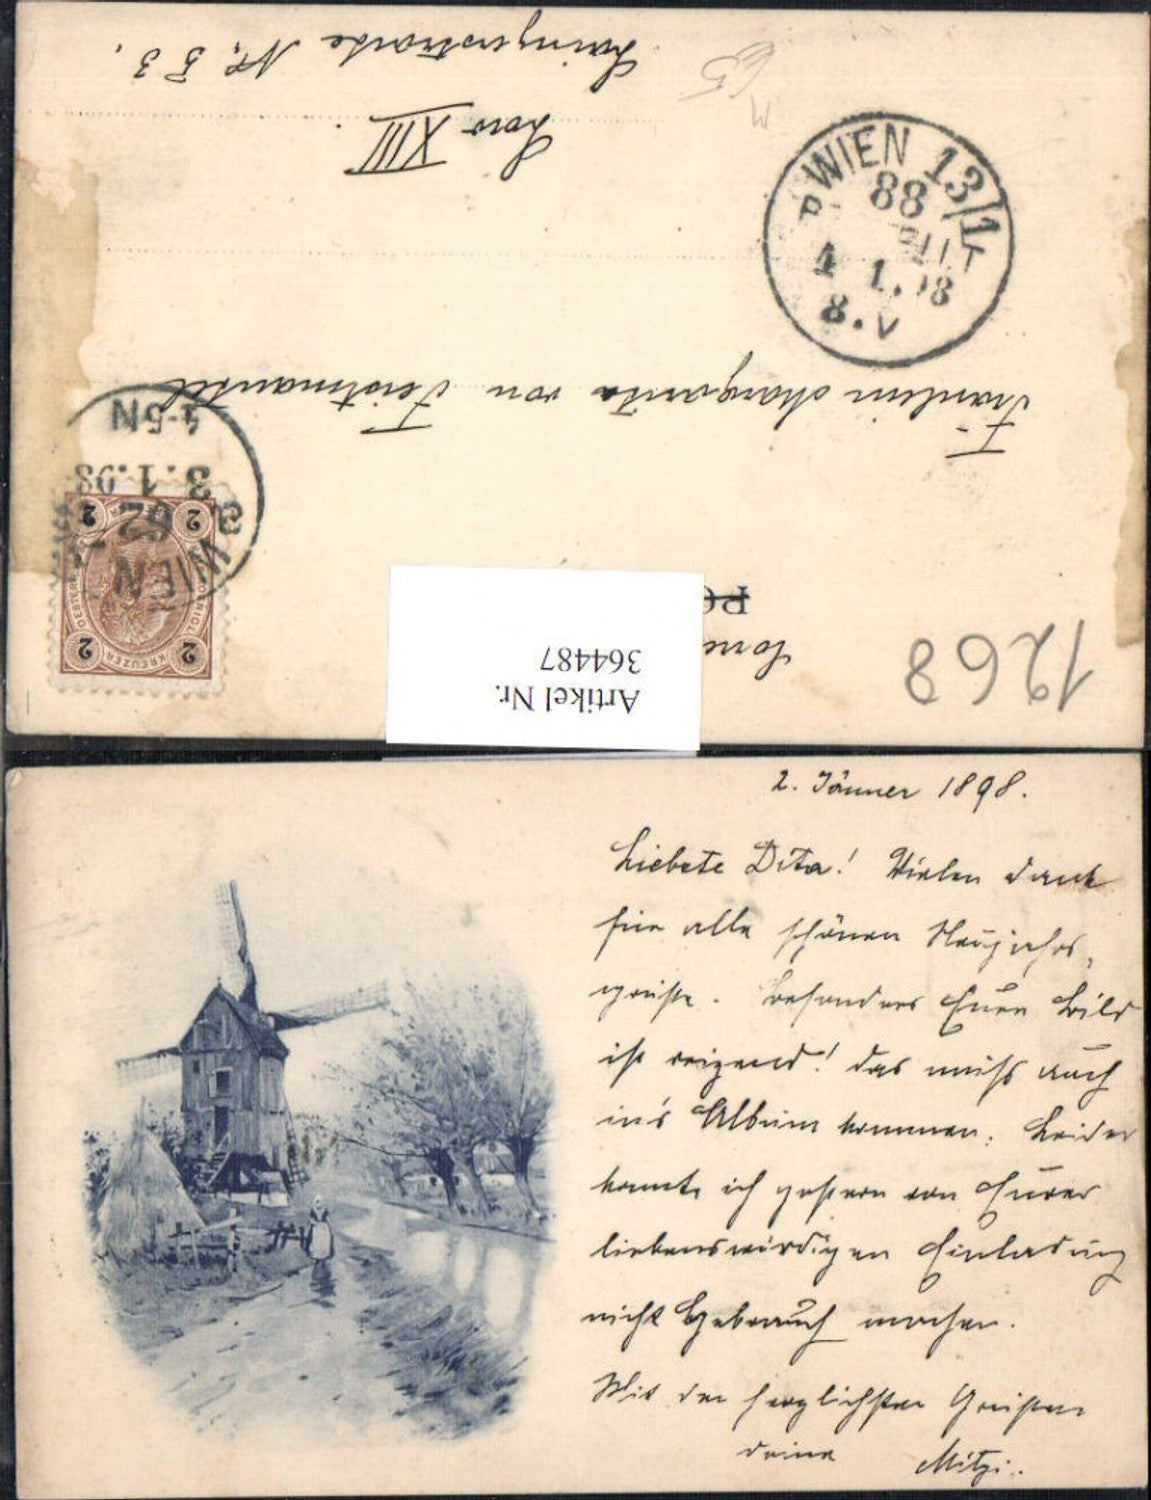 Lainzerstraße Nr. 53.
Loco XIII.
65
WIEN 13/1
88
4 1.98
8.V
Fräulein Margarita von
4-5N
3.1.98
62
WIEN
2 2
2 KREUZER 2
Artikel Nr.
364487
1268
2. Jänner 1898.
Liebste Dita! Vielen Dank
für alle schönen Neujahrs-
grüße. Besonders Euer Bild
ist reizend! das muß auch
in's Album kommen. Leider
konnte ich gestern von Eurer
liebenswürdigen Einladung
nicht Gebrauch machen.
Mit den herzlichsten Grüßen
deine Mitzi.